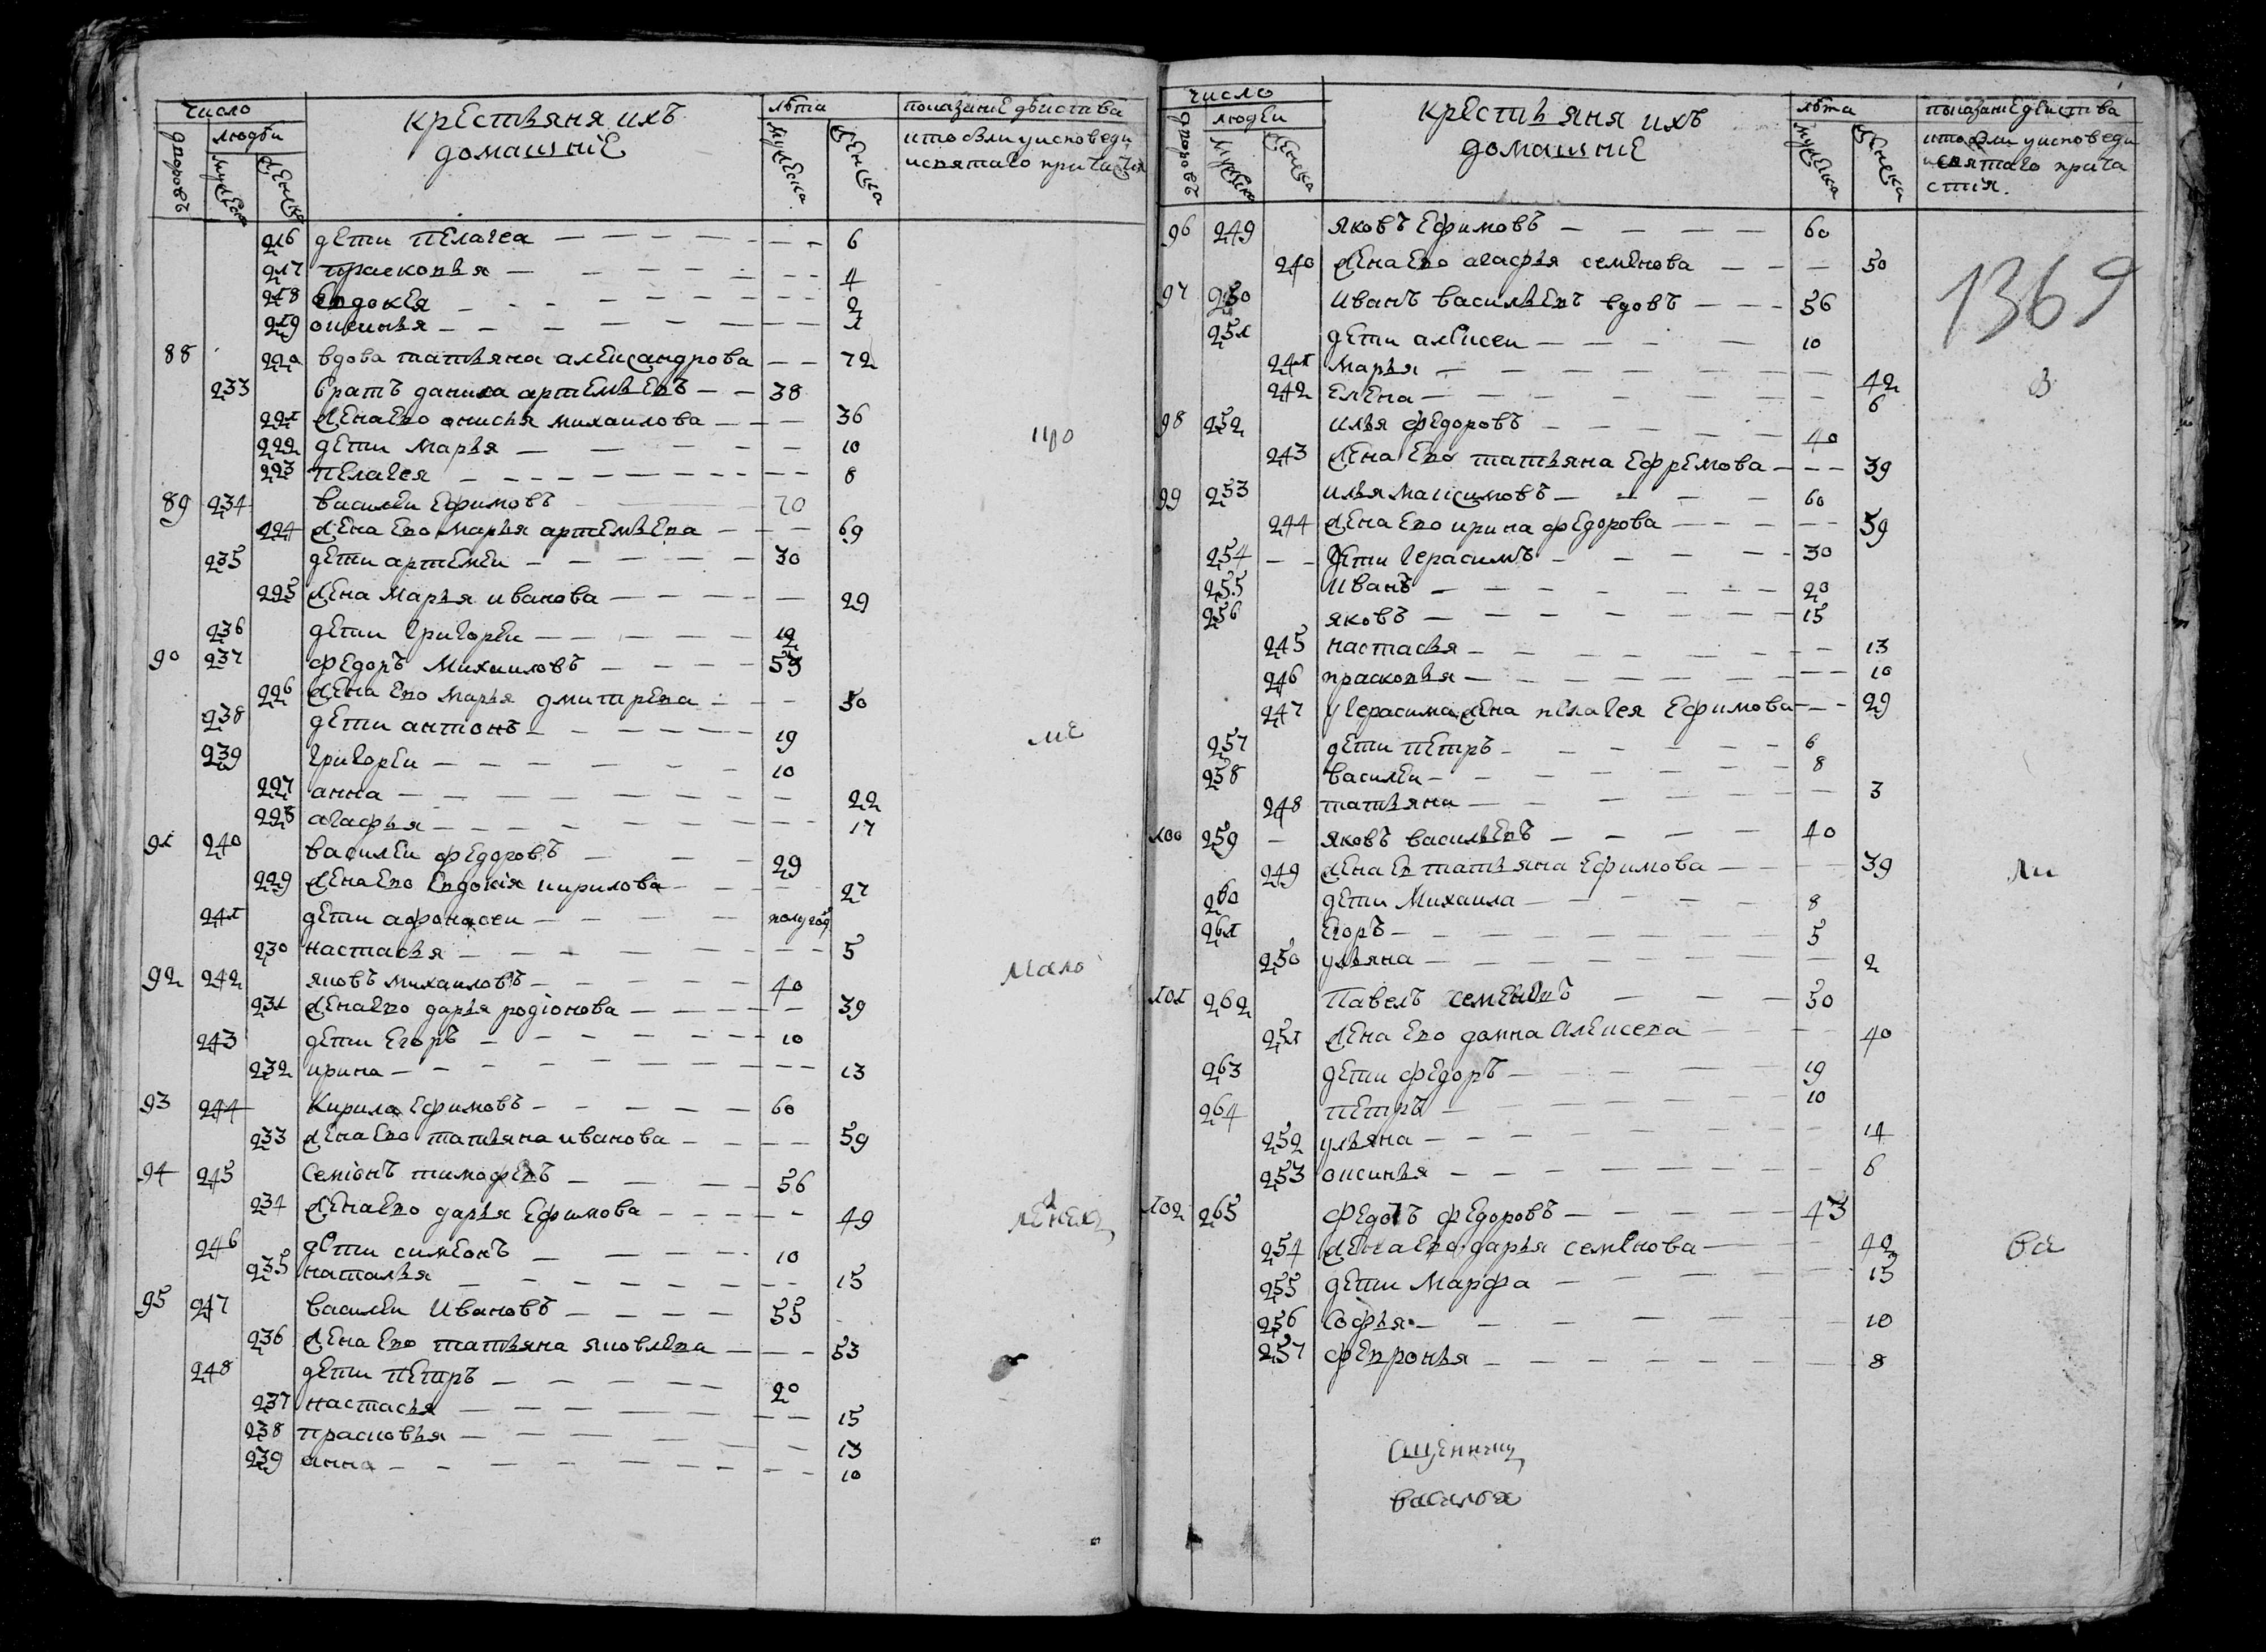 число
лѣта
показание дѣиства
дворовъ
людѣи
крестьяня ихъ
домашние
мужеска
женска
мужеска
женска
кто был у исповеди
и святаго причастия
216 дети пелагеа 6
217 прасковья 4
218 Евдокея 2
219 оксинья 1
88 220 вдова татьяна александрова 72
233 братъ данила артемьевъ 38
221 жена ево анисья михаилова 36
222 дети Марья 10
223 пелагея 8
89 234 василеи Ефимовъ 70
224 жена ево марья артемьева 69
235 дети артемеи 30
225 жена Марья иванова 29
236 дети григореи 12
90 237 федоръ Михаиловъ 53
226 жена ево марья дмитрева 50
238 дети антонъ 19
239 григореи 10
227 анна 22
228 агафья 17
91 240 василеи федоровъ 29
229 жена ево Евдокія кирилова 27
241 дети афонасеи полугод
230 настасья 5
92 242 яковъ михаиловъ 40
231 жена ево дарья родіонова 39
243 дети Егоръ 10
232 ирина 13
93 244 Кирила Ефимовъ 60
233 жена ево татьяна иванова 59
94 245 Семіонъ тимофевъ 56
234 жена ево дарья Ефимова 49
246 дети симеонъ 10
235 наталья 15
95 247 василеи Ивановъ 55
236 жена ево татьяна яковлева 53
248 дети петръ 20
237 настасья 15
238 прасковья 13
239 анна 10
мало
число
лѣта
показание деиства
дворовъ
людеи
крестьяня ихъ
домашние
мужеска
женска
мужеска
женска
кто был у исповеди
и святаго прича
стия.
96 249 яковъ Ефимовъ 60
240 жена ево агафья семенова 50
1369
97 250 Иванъ васильевъ вдовъ 56
251 дети алексеи 10
241 марья 42
242 елена 6
98 252 илья федоровъ 40
243 жена ево татьяна Ефремова 39
99 253 илья максимовъ 60
244 жена ево ирина федорова 59
254 дети герасимъ 30
255 Иванъ 20
256 яковъ 15
245 настасья 13
246 прасковья 10
247 у герасима жена пелагея Ефимова 29
257 дети петръ 6
258 василеи 8
248 татьяна 3
100 259 яковъ васильевъ 40
249 жена ев татьяна Ефимова 39
260 дети Михаила 8
261 Егоръ 5
250 ульяна 2
101 262 Павелъ семеновъ 50
251 жена ево домна алексева 40
263 дети федоръ 19
264 петръ 10
252 ульяна 14
253 оксинья 6
102 265 федотъ федоровъ 43
254 жена ево дарья семенова 42
255 дети Марфа 15
256 софья 10
257 февронья 8
васильа